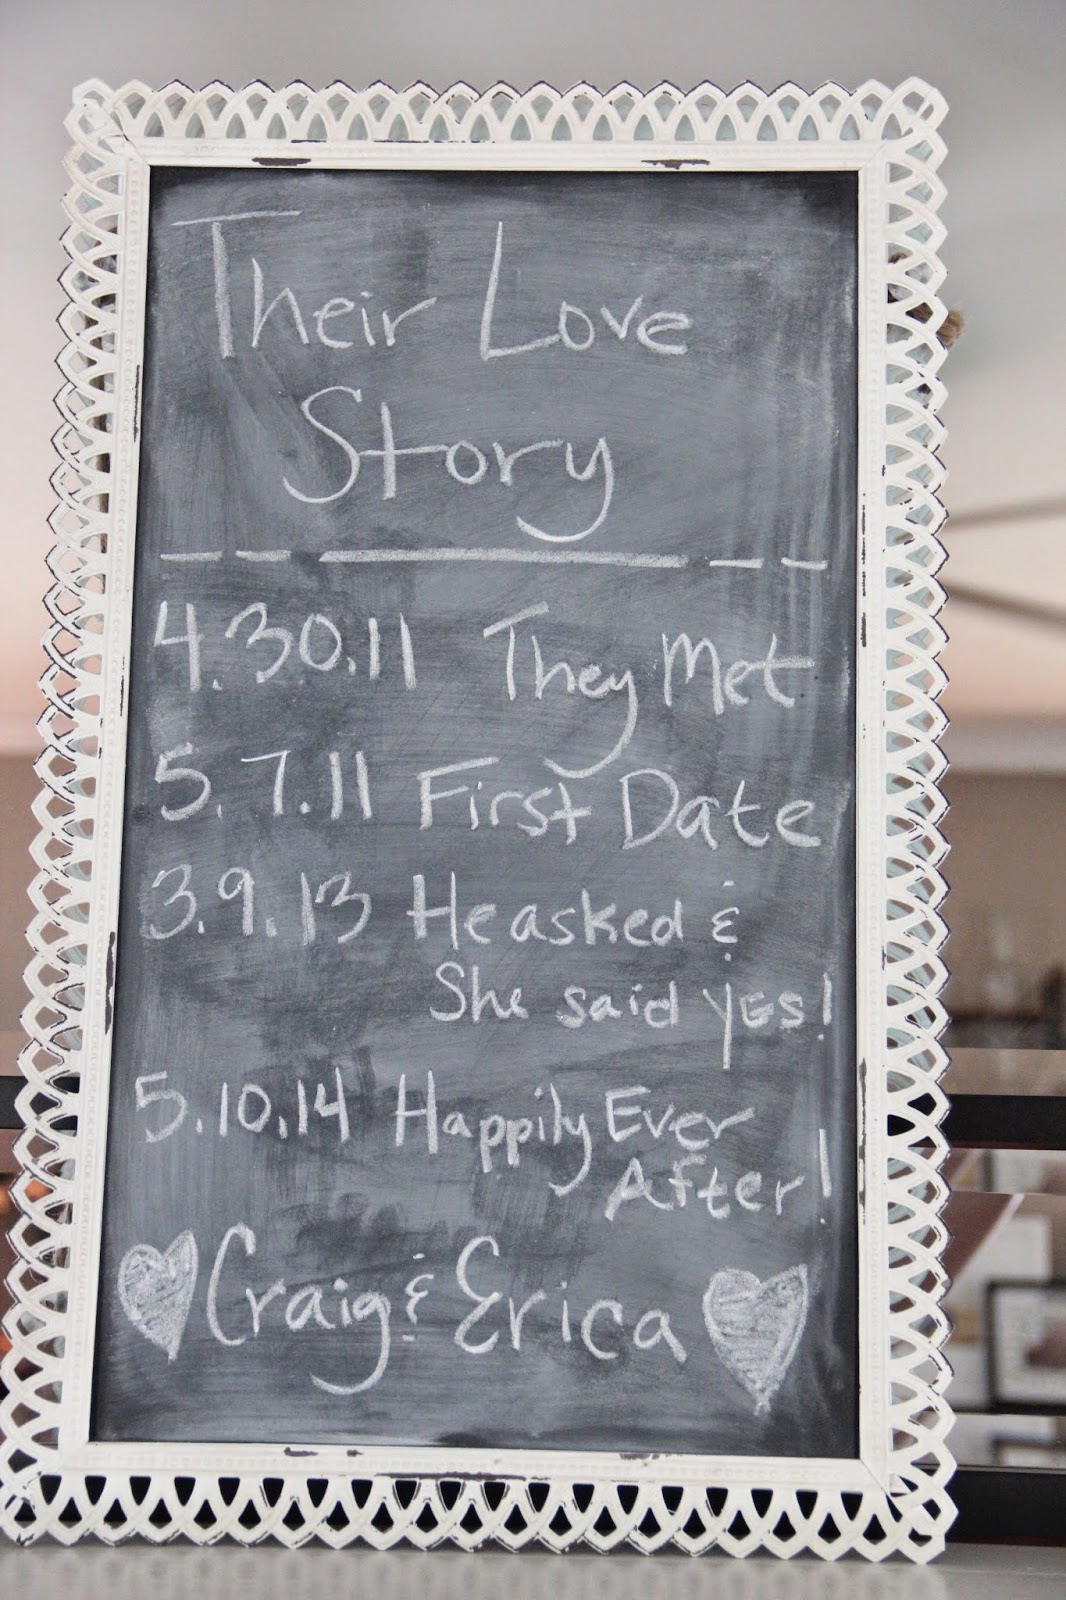 Their Love
Story
4.30.11 They Met
5.7.11 First Date
3.9.13 He asked &
She said yes!
5.10.14 Happily Ever
After!
Craig & Erica